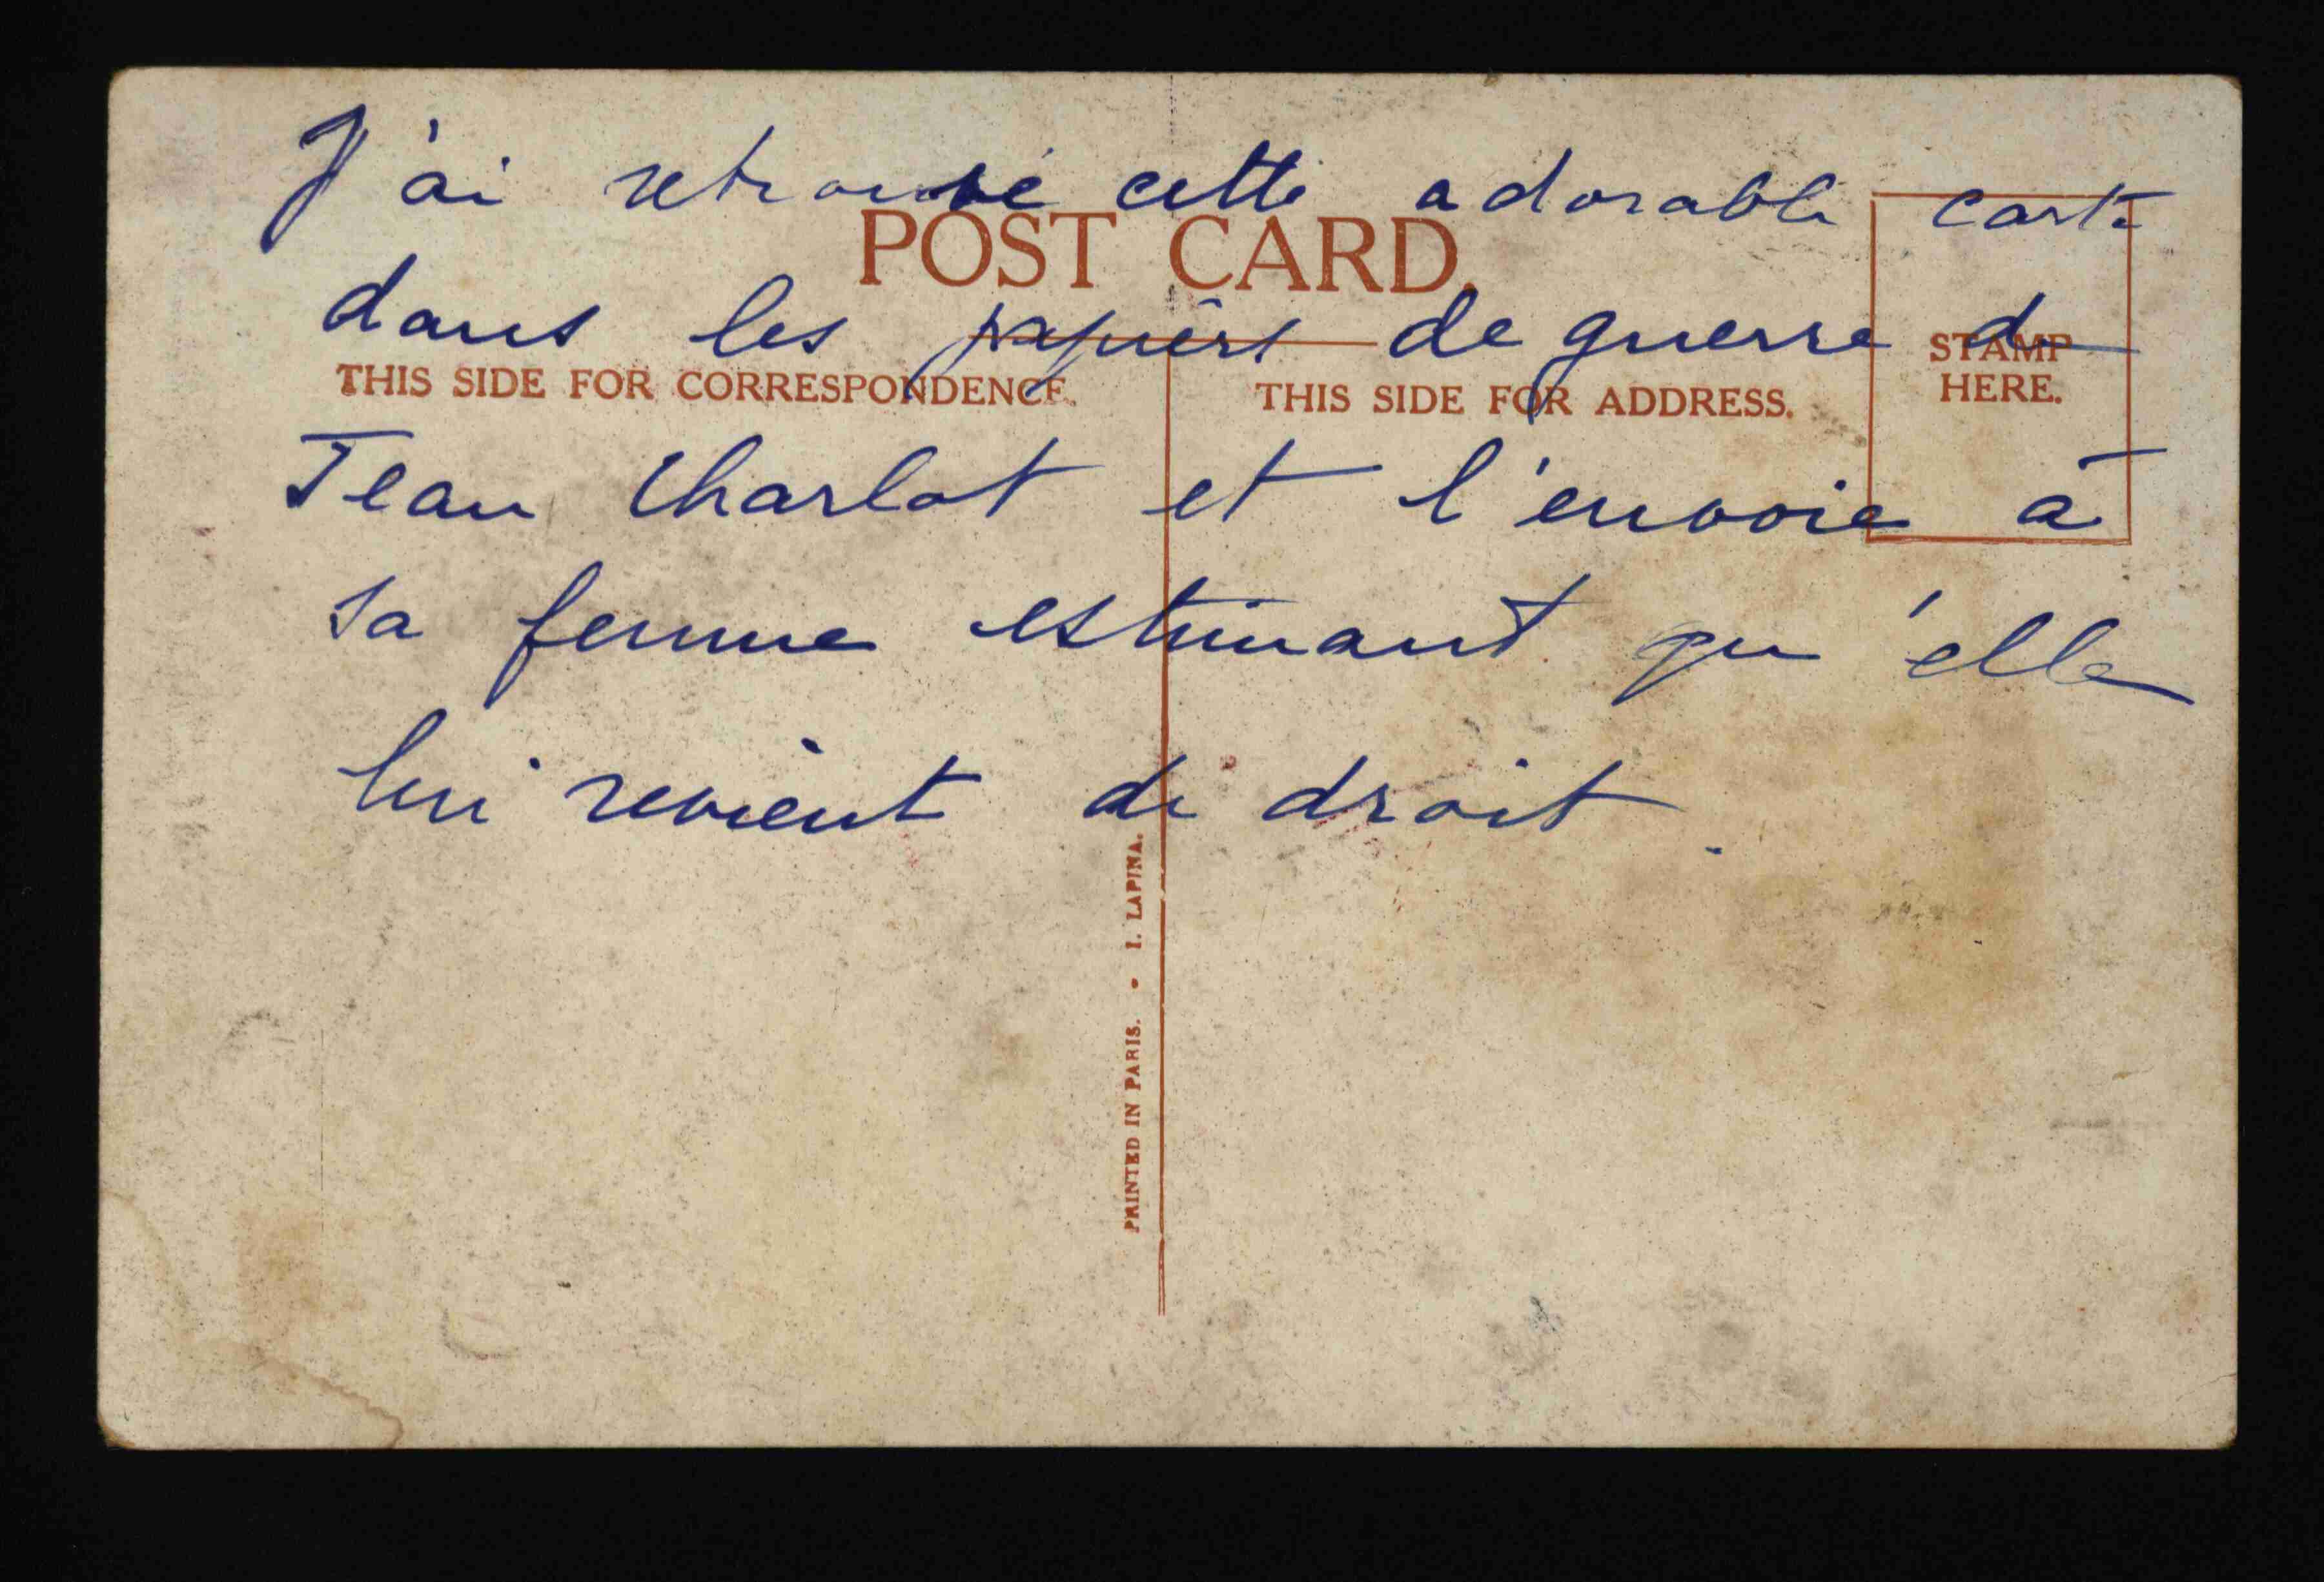 J'ai retrouvé cette adorable carte
POST CARD.
dans les papiers de guerre de
STAMP
HERE.
THIS SIDE FOR CORRESPONDENCE.
THIS SIDE FOR ADDRESS.
Jean Charlot et l'envoie à
sa femme estimant qu'elle
lui revient de droit.
PRINTED IN PARIS. • I. LAPINA.